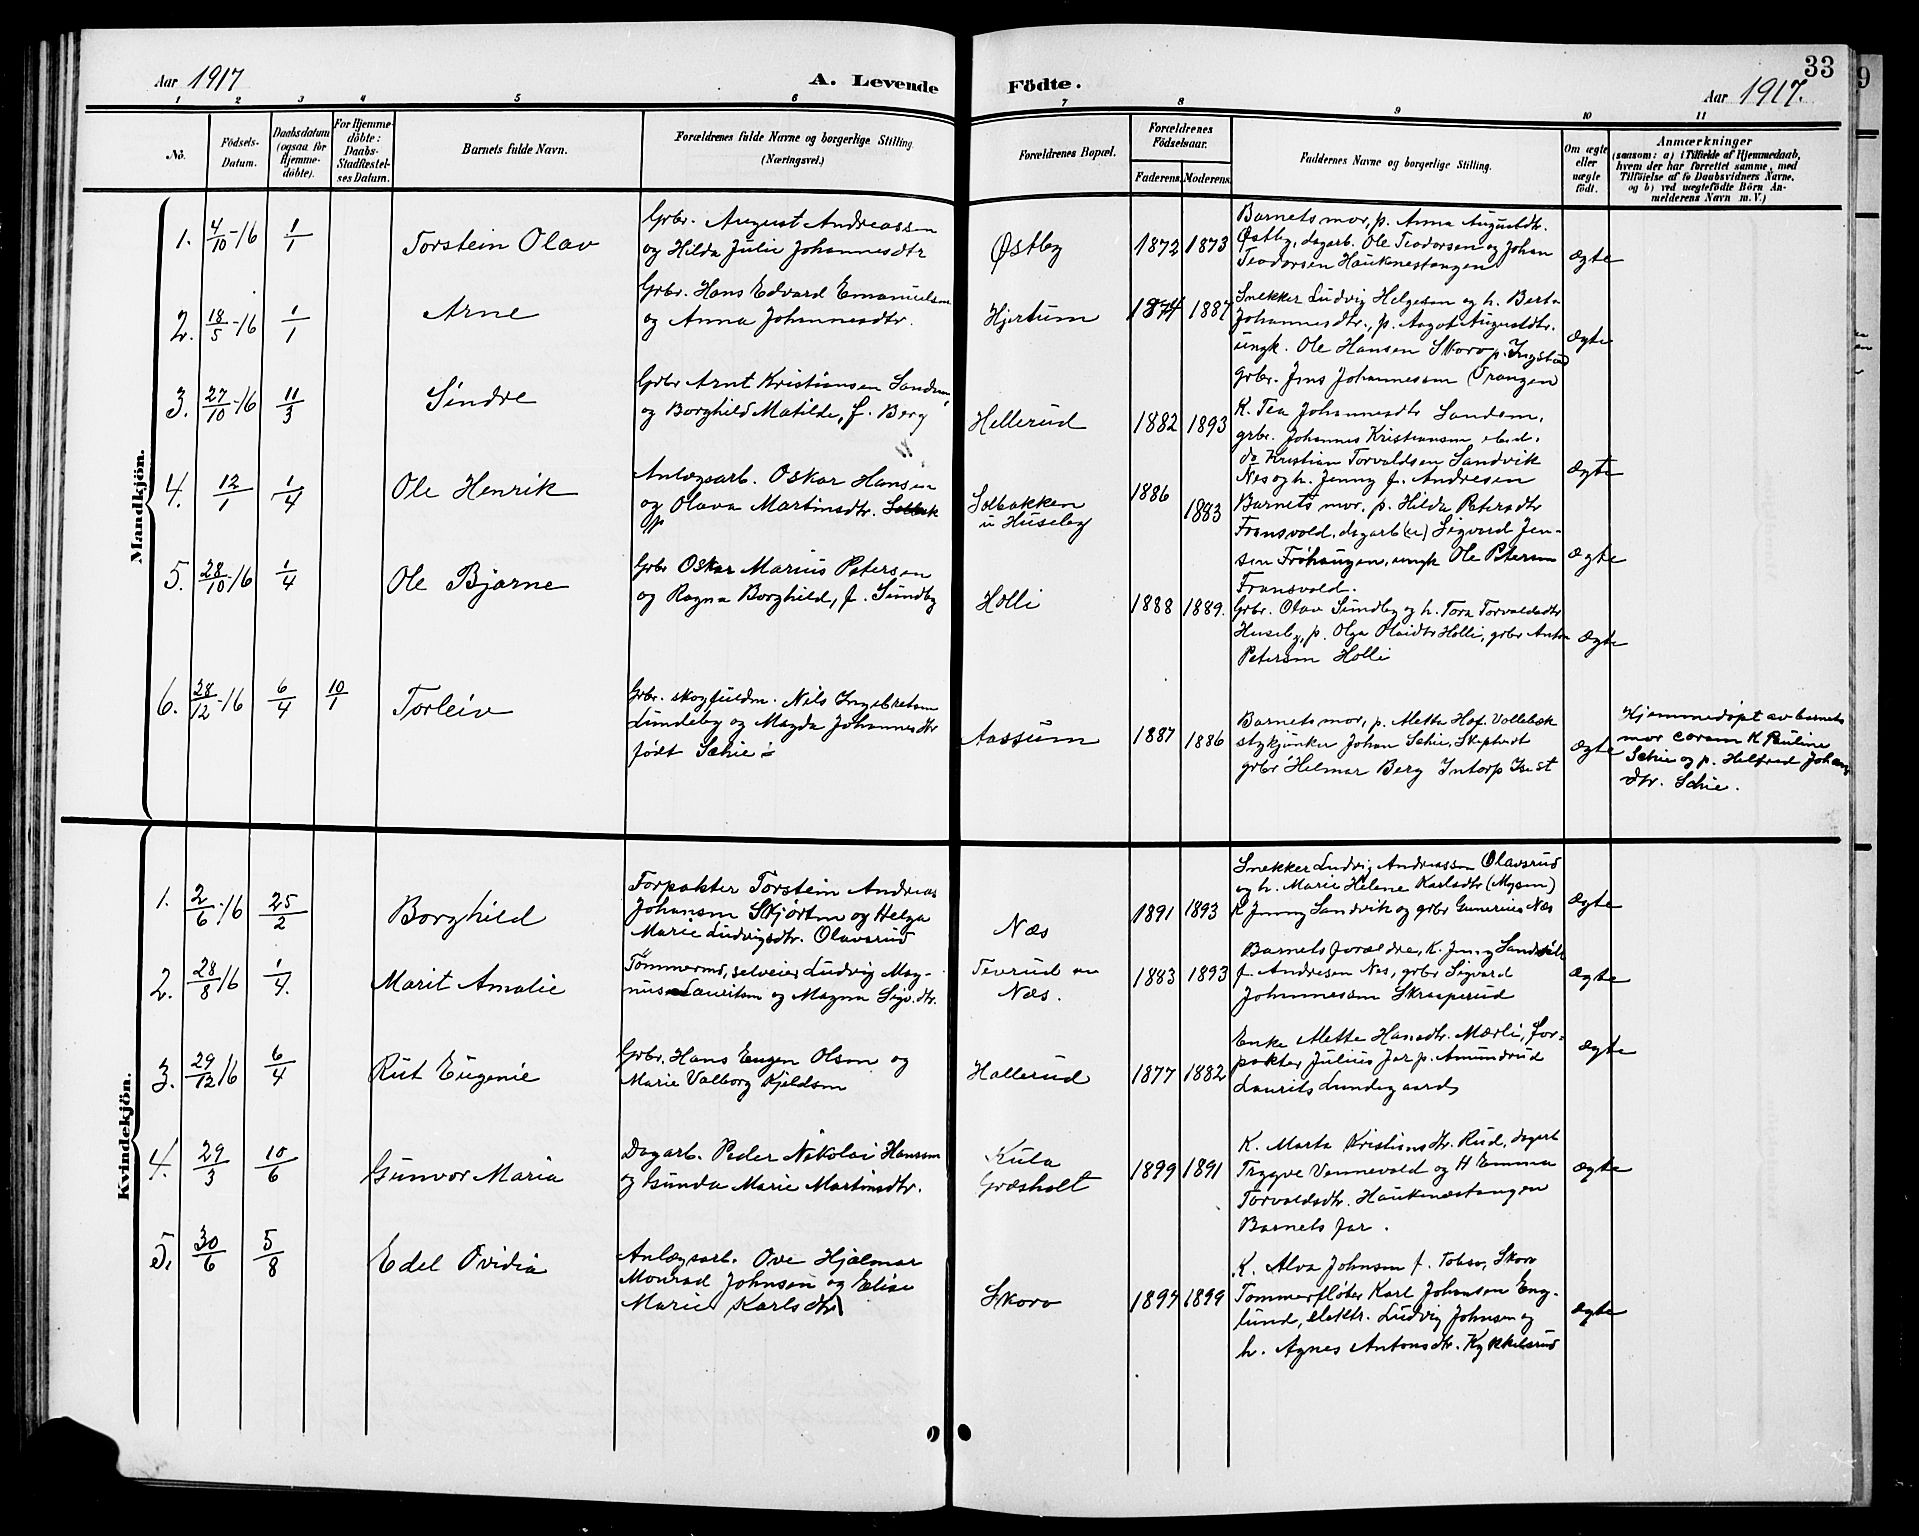 33
Aar 1917
A. Levende
Födte.
Aar 1917.
1 2 3 4 5 6 7 8 9 10 11
No.
Födsels-
Datum.
Daabsdatum
(ogsaa for
Hjemme-
döbte).
For Hjemme
döbte:
Daabs-
Stadfæstel-
ses Datum.
Barnets fulde Navn.
Forældrenes fulde Navne og borgerlige Stilling
(Næringsvei.)
Forældrenes Bopæl.
Forældrenes
Födselsaar.
Faderens. Moderens.
Faddernes Navne og borgerlige Stilling.
Om ægte
eller
uægte
födt.
Anmærkninger
(saasom: a) i Tilfælde af Hjemmedaab,
hvem der har forrettet samme, med
Tilföielse af to Daabsvidners Navne,
og b) ved uægtefödte Börn An-
melderens Navn m. V.)
Mandkjön.
1. 4/10 -16 1/1 Torstein Olav
Grbr. August Andreassen
og Hilda Julie Johannesdtr
Østby 1872 1873
Barnets mor, p. Anna Augustdtr.
Østby, dagarb. Ole Teodorsen og Johan
Teodorsen Haukenestangen
ægte
2. 18/5 -16 1/1 Arne
Grbr. Hans Edvard Emanuelsen
og Anna Johannesdtr.
Hjertum 1874 1887
Snekker Ludvig Helgesen og h. Berta
Johannesdtr., p. Aagot Augustdtr.
ungk. Ole Hansen Skoro p. Ingstad
ægte
3. 27/10 -16 11/3 Sindre
Grbr Arnt Kristiansen Sandem
og Borghild Matilde, f. Berg
Hellerud 1882 1893
grbr. Jens Johannessen (Trangen
K. Tea Johannesdtr Sandem,
grbr. Johannes Kristiansen ibid.
do Kristian Torvaldsen Sandvik
Nes og h. Jenny f. Andresen
ægte
4. 12/1 1/4 Ole Henrik
Anlægsarb. Oskar Hansen
og Olava Martinsdtr.
Solbakken
u Huseby
1886 1883
Barnets mor, p. Hilda Petersdtr
Fransvold, dagarb (e) Sigvard Jen-
sen Frøhaugen, ungk Ole Petersen
Fransvold.
ægte
5. 28/10 -16 1/4 Ole Bjarne
Grbr Oskar Marius Petersen
og Ragna Borghild, f. Sundby
Holli 1888 1889.
Grbr. Olav Sundby og h. Tora Torvaldsdtr
Huseby, p. Olga Olaidtr Holli, grbr Anton
Petersen Holli
ægte
6. 28/12 -16 6/4 10/1 Torleiv
Grbr. skogfuldm. Nils Ingebretsen
Lundeby og Magda Johannesdtr
født Schie
Aassum 1887 1886
Barnets mor, p. Aletta Hof. Vollebæk
stykjunker Johan Schie, Skiptvedt
grbr Helmar Berg Intorp
ægte
Hjemmedøpt av barnets
mor coram K Pauline
Schie og p. Helfred Johans
dtr. Schie.
Kvindekjön.
1. 2/6 -16 25/2 Borghild
Forpakter Torstein Andreas
Johansen Skjørten og Helga
Marie Ludvigsdtr. Olavsrud
Næs 1891 1893
Snekker Ludvig Andreassen Olavsrud
og h. Marie Helene Karlsdtr (Mysen)
K Jenny Sandvik og grbr Gunerius Næs
ægte
2. 28/8 16 1/4. Marit Amalie
Tømmermd, selveier Ludvig Mag-
nus Lauritsen og Magna Sigv. dtr.
Teverud en
Næs.
1883 1893
Barnets forældre, K. Jenny Sandvik
f. Andresen Nes, grbr Sigvard
Johannessen Skraperud
ægte
3. 29/12 16 6/4 Rut Eugenie
Grbr. Hans Eugen Olsen og
Marie Valborg Kjeldsen
Hallerud 1877 1882
Enke Aletta Hansdtr. Mærli, for-
pakter Julius Jar p. Amundrud
Laurits Lundegaard
ægte
4. 29/3 10/6 Gunvor Maria
Dagarb. Peder Nikolai Hansen
og Gunda Marie Martinsdtr.
Kula
Græsholt
1899 1891
K. Marta Kristiansdtr. Rud, dagarb
Trygve Vennevold og H Emma
Torvaldsdtr. Haukenæstangen
Barnets far.
ægte
5. 30/6 5/8 Edel Ovidia
Anlægsarb. Ove Hjalmar
Monrad Johnsen og Elise
Marie Karlsdtr
Skoro 1897 1899
K. Alva Johnsen f. Skoro
Tommerfløter Karl Johansen Eng-
lund, elektr. Ludvig Johnsen og
h. Agnes Antonsdtr. Kykkelsrud
ægte